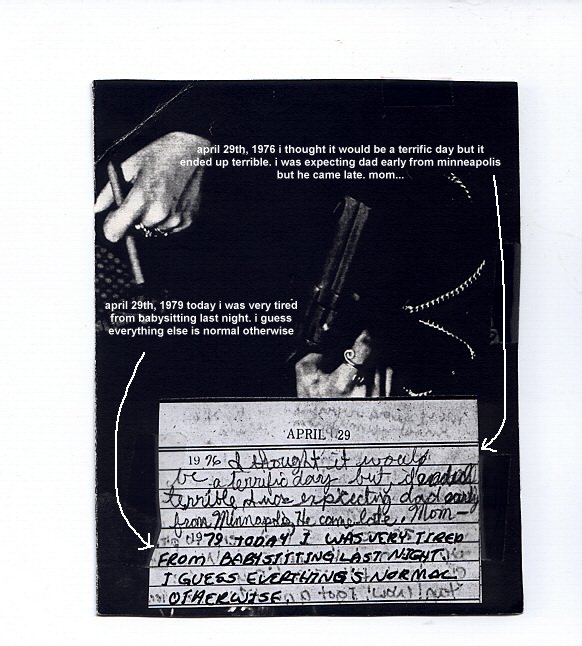 april 29th, 1976 i thought it would be a terrific day but it
ended up terrible. i was expecting dad early from minneapolis
but he came late. mom...
april 29th, 1979 today i was very tired
from babysitting last night. i guess
everything else is normal otherwise
APRIL 29
1976 I thought it would
be a terrific day but, it ended
terrible I was expecting dad early
from Minnapolis, He came late, Mom—
1979 TODAY I WAS VERY TIRED
FROM BABYSITTING LAST NIGHT.
I GUESS EVERTHING'S NORMAL
OTHERWISE